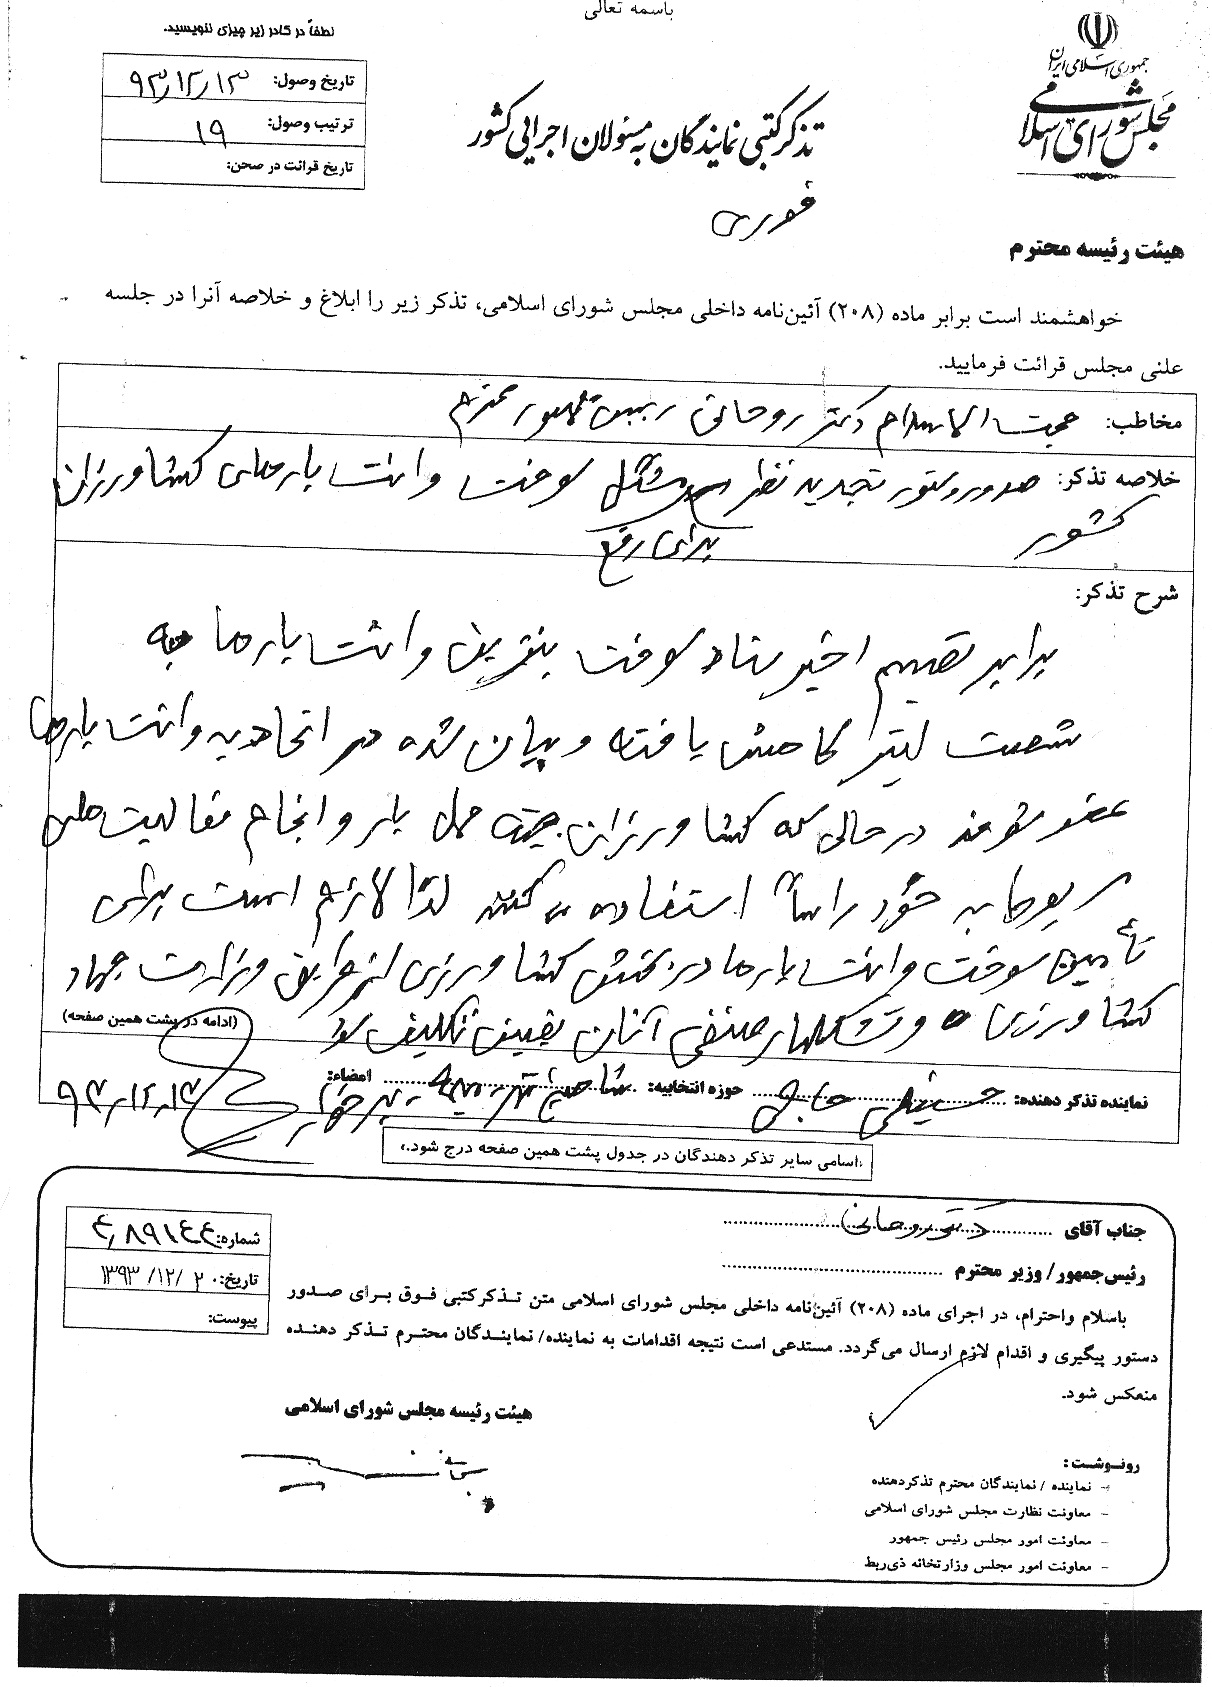 باسمه تعالی
جمهوری اسلامی ایران
مجلس شورای اسلامی
لطفاً در کادر زیر چیزی ننویسید.
تاریخ وصول: ۹۳/۱۲/۱۳
ترتیب وصول: ۱۹
تاریخ قرائت در صحن:
تذکر کتبی نمایندگان به مسئولان اجرایی کشور
فوری
هیئت رئیسه محترم
خواهشمند است برابر ماده (۲۰۸) آئین‌نامه داخلی مجلس شورای اسلامی، تذکر زیر را ابلاغ و خلاصه آنرا در جلسه
علنی مجلس قرائت فرمایید.
مخاطب: حجت الاسلام دکتر روحانی رییس جمهور محترم
خلاصه تذکر: صدور دستور تجدید نظر مشکل سوخت وانت بارهای کشاورزان
کشور
برای رفع
شرح تذکر:
برابر تصمیم اخیر ستاد سوخت بنزین وانت بارها به
شصت لیتر کاهش یافته و بیان شده در اتحادیه وانت بارها
عضو شوند در حالی که کشاورزان جهت حمل بار و انجام فعالیت های
مربوط به خود راساً استفاده می کنند لذا لازم است برای
تأمین سوخت وانت بارها در بخش کشاورزی از طریق وزارت جهاد
کشاورزی و تشکلهای صنفی آنان تعیین تکلیف شود
(ادامه در پشت همین صفحه)
نماینده تذکر دهنده: حسینعلی حاجی حوزه انتخابیه: شاهین شهر میمه - برخوار امضاء: ۹۳/۱۲/۱۳
اسامی سایر تذکر دهندگان در جدول پشت همین صفحه درج شود.
جناب آقای دکتر روحانی
رئیس‌جمهور/ وزیر محترم
شماره: ۴۸۹۱۴۴
تاریخ: ۱۳۹۳/۱۲/۲۰
پیوست:
باسلام واحترام، در اجرای ماده (۲۰۸) آئین‌نامه داخلی مجلس شورای اسلامی متن تذکرکتبی فوق برای صدور
دستور پیگیری و اقدام لازم ارسال می‌گردد. مستدعی است نتیجه اقدامات به نماینده/ نمایندگان محترم تذکر دهنده
منعکس شود.
هیئت رئیسه مجلس شورای اسلامی
رونوشت:
- نماینده / نمایندگان محترم تذکردهنده
- معاونت نظارت مجلس شورای اسلامی
- معاونت امور مجلس رئیس جمهور
- معاونت امور مجلس وزارتخانه ذی‌ربط